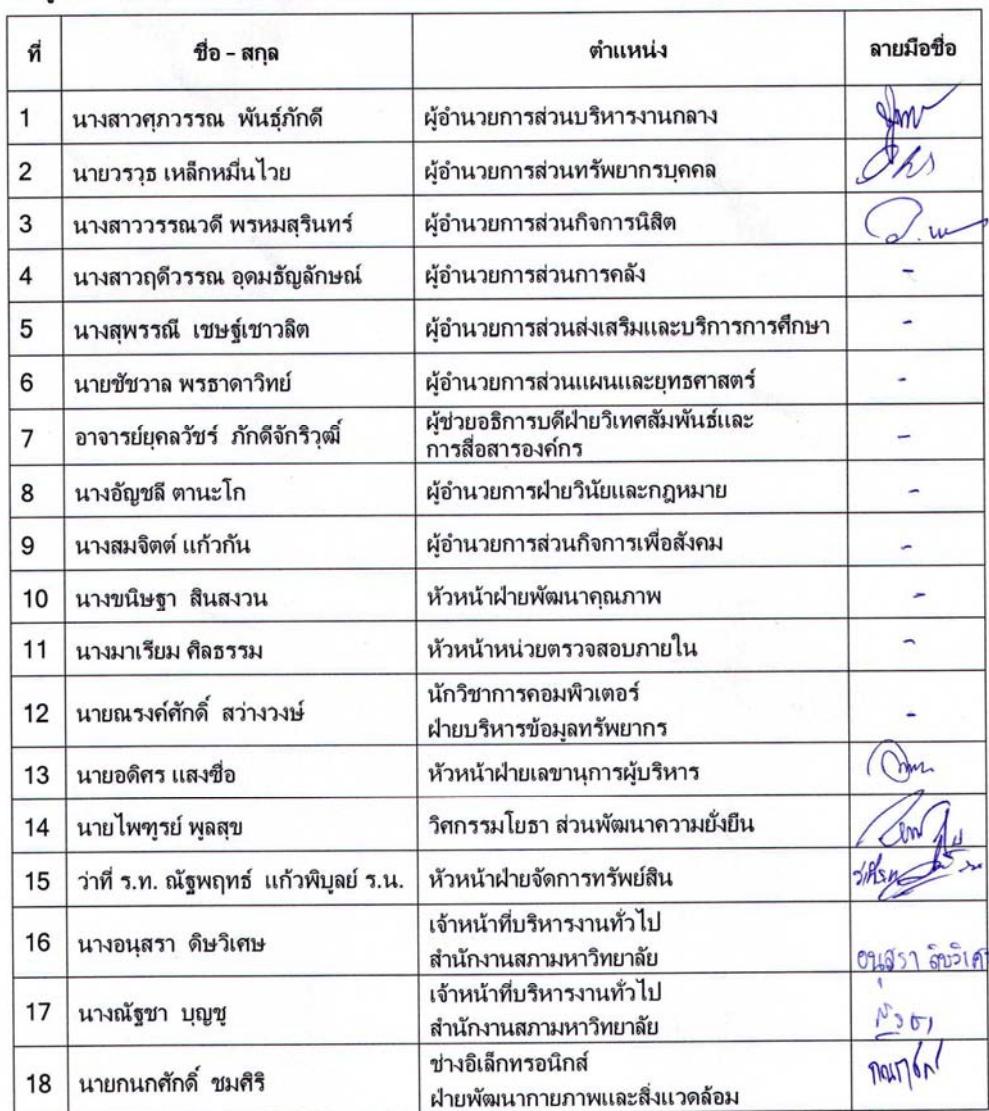 ที่ ชื่อ - สกุล ตำแหน่ง ลายมือชื่อ
1 นางสาวศุภวรรณ พันธุ์ภักดี ผู้อำนวยการส่วนบริหารงานกลาง
2 นายวรวุธ เหล็กหมื่นไวย ผู้อำนวยการส่วนทรัพยากรบุคคล
3 นางสาววรรณวดี พรหมสุรินทร์ ผู้อำนวยการส่วนกิจการนิสิต
4 นางสาวฤดีวรรณ อุดมธัญลักษณ์ ผู้อำนวยการส่วนการคลัง -
5 นางสุพรรณี เชษฐ์เชาวลิต ผู้อำนวยการส่วนส่งเสริมและบริการการศึกษา -
6 นายชัชวาล พรธาดาวิทย์ ผู้อำนวยการส่วนแผนและยุทธศาสตร์ -
7 อาจารย์ยุคลวัชร์ ภักดีจักริวุฒิ์ ผู้ช่วยอธิการบดีฝ่ายวิเทศสัมพันธ์และ -
การสื่อสารองค์กร
8 นางอัญชลี ตานะโก ผู้อำนวยการฝ่ายวินัยและกฎหมาย -
9 นางสมจิตต์ แก้วกัน ผู้อำนวยการส่วนกิจการเพื่อสังคม -
10 นางขนิษฐา สินสงวน หัวหน้าฝ่ายพัฒนาคุณภาพ -
11 นางมาเรียม ศิลธรรม หัวหน้าหน่วยตรวจสอบภายใน -
12 นายณรงค์ศักดิ์ สว่างวงษ์ นักวิชาการคอมพิวเตอร์ -
ฝ่ายบริหารข้อมูลทรัพยากร
13 นายอดิศร แสงซื่อ หัวหน้าฝ่ายเลขานุการผู้บริหาร
14 นายไพฑูรย์ พูลสุข วิศกรรมโยธา ส่วนพัฒนาความยั่งยืน
15 ว่าที่ ร.ท. ณัฐพฤทธ์ แก้วพิบูลย์ ร.น. หัวหน้าฝ่ายจัดการทรัพย์สิน
16 นางอนุสรา ดิษวิเศษ เจ้าหน้าที่บริหารงานทั่วไป
สำนักงานสภามหาวิทยาลัย อนุสรา
17 นางณัฐชา บุญชู เจ้าหน้าที่บริหารงานทั่วไป
สำนักงานสภามหาวิทยาลัย
18 นายกนกศักดิ์ ชมศิริ ช่างอิเล็กทรอนิกส์
ฝ่ายพัฒนากายภาพและสิ่งแวดล้อม